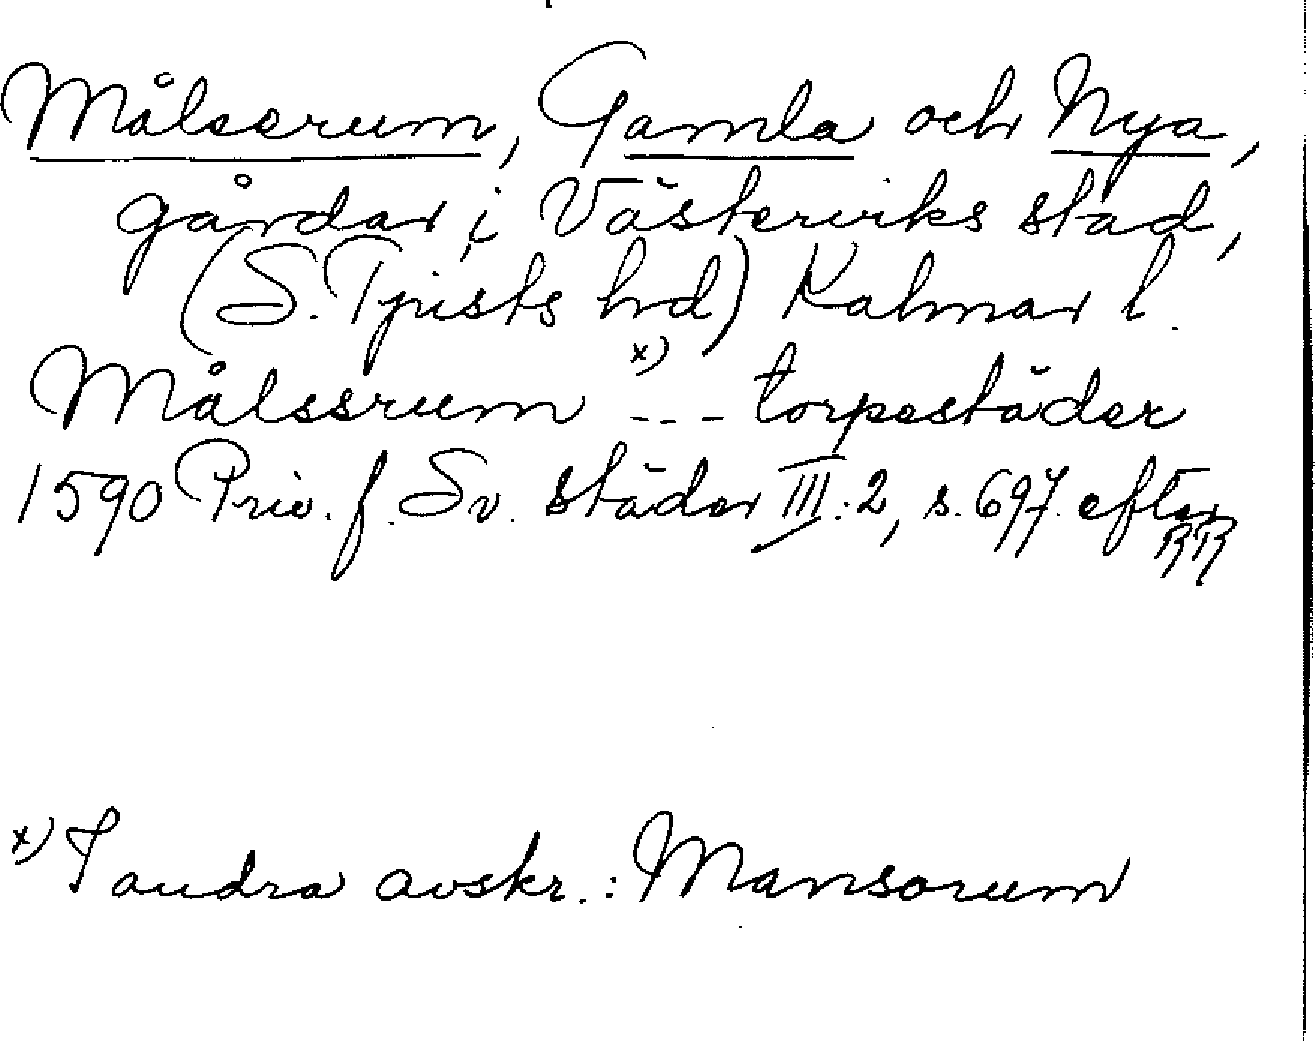 Målserum, Gamla och Nya,
gårdar i Västerviks stad,
(S. Tjusts hd) Kalmar l.
Målssrum x) - - - torpestäder
1590 Priv. f. Sv. städer III:2, s. 697. efter
RR
x) I andra avskr.: Mansorum